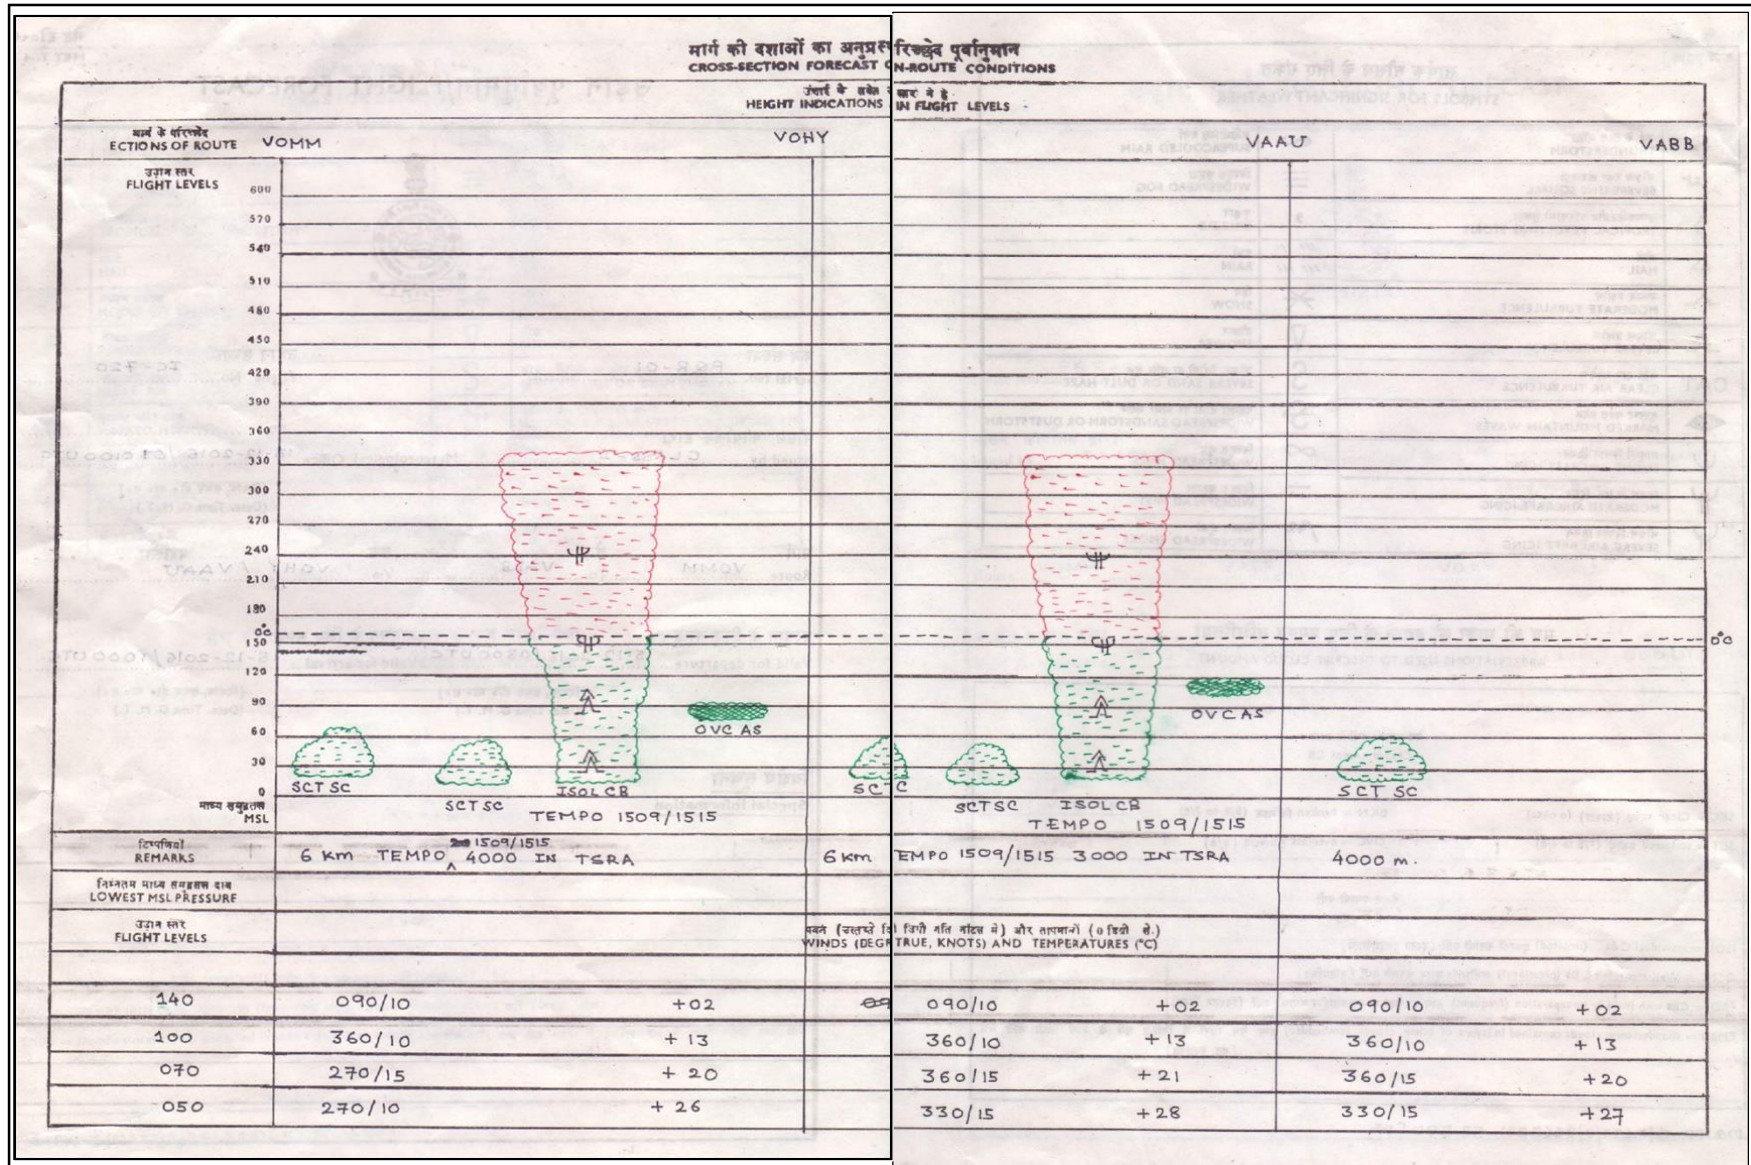 मार्ग की दशाओं का अनुप्रस्थ रिच्छेद पूर्वानुमान
CROSS-SECTION FORECAST O N-ROUTE CONDITIONS
HEIGHT INDICATIONS IN FLIGHT LEVELS
मार्ग के परिच्छेद
ECTIONS OF ROUTE VOMM VOHY VAAU VABB
उड़ान स्तर
FLIGHT LEVELS
600
570
540
510
480
450
420
390
360
330
300
270
240
210
180
0°C 0°C
150
120
90
60
30
0
OVC AS
OVC AS
SCT SC ISOL CB SC C SCT SC
SCT SC SCT SC ISOL CB
माध्य समुद्रतल
MSL
TEMPO 1509/1515 TEMPO 1509/1515
टिप्पणियाँ
REMARKS
1509/1515
6 km TEMPO ^ 4000 IN TSRA 6 km EMPO 1509/1515 3000 IN TSRA 4000 m.
निम्नतम माध्य समुद्रतल दाब
LOWEST MSL PRESSURE
उड़ान स्तर
FLIGHT LEVELS
WINDS (DEGR TRUE, KNOTS) AND TEMPERATURES (°C)
140 090/10 +02 09 090/10 +02 090/10 +02
100 360/10 +13 360/10 +13 360/10 +13
070 270/15 +20 360/15 +21 360/15 +20
050 270/10 +26 330/15 +28 330/15 +27